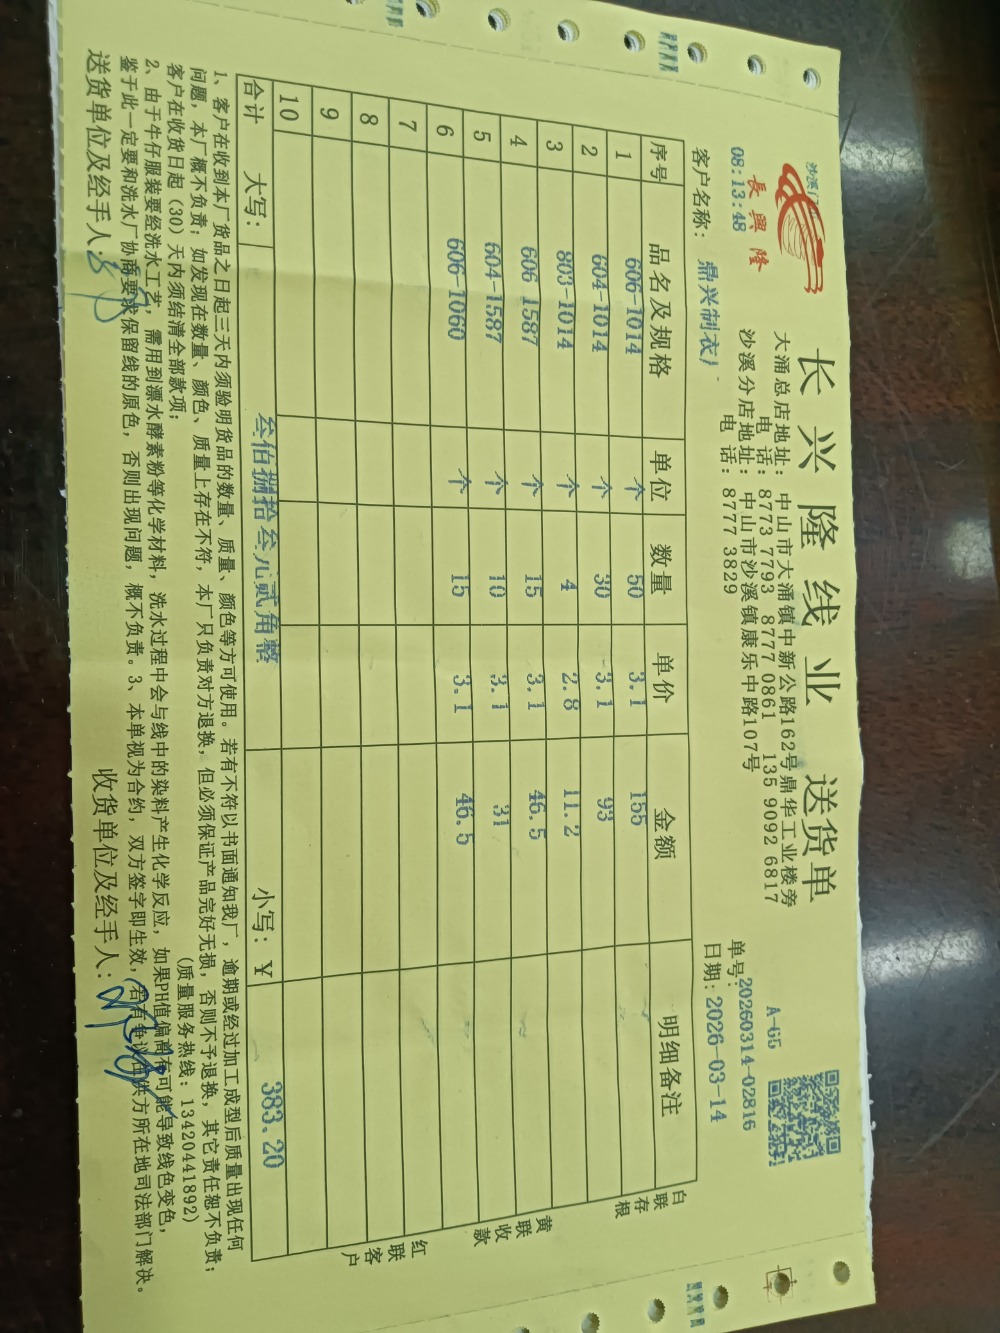 長興隆
长兴隆线业 送货单
大涌总店地址:中山市大涌镇中新公路162号鼎华工业楼旁
电 话:8773 7793 8777 0861 135 9092 6817
沙溪分店地址:中山市沙溪镇康乐中路107号
电 话:8777 3829
08:13:48
A-G5
单号:20260314-02816
客户名称: 鼎兴制衣厂
日期:2026-03-14
序号 品名及规格 单位 数量 单价 金额 明细备注
1 606-1014 个 50 3.1 155
2 604-1014 个 30 3.1 93
3 803-1014 个 4 2.8 11.2
4 606 1587 个 15 3.1 46.5
5 604-1587 个 10 3.1 31
6 606-1060 个 15 3.1 46.5
7
8
9
10
合计 大写: 叁佰捌拾叁元贰角整 小写:¥ 383.20
白联存根
黄联收款
红联客户
1、客户在收到本厂货品之日起三天内须验明货品的数量、质量、颜色等方可使用。若有不符以书面通知我厂,逾期或经过加工成型后质量出现任何
问题,本厂概不负责;如发现在数量、颜色、质量上存在不符,本厂只负责对方退换,但必须保证产品完好无损,否则不予退换,其它责任恕不负责;
客户在收货日起(30)天内须结清全部款项; (质量服务热线:13420441892)
2、由于牛仔服装要经洗水工艺,需用到漂水酵素粉等化学材料,洗水过程中会与线中的染料产生化学反应,如果PH值偏高有可能导致线色变色,
鉴于此一定要和洗水厂协商要求保留线的原色,否则出现问题,概不负责。3、本单视为合约,双方签字即生效,若有争议由供方所在地司法部门解决。
送货单位及经手人:
收货单位及经手人: